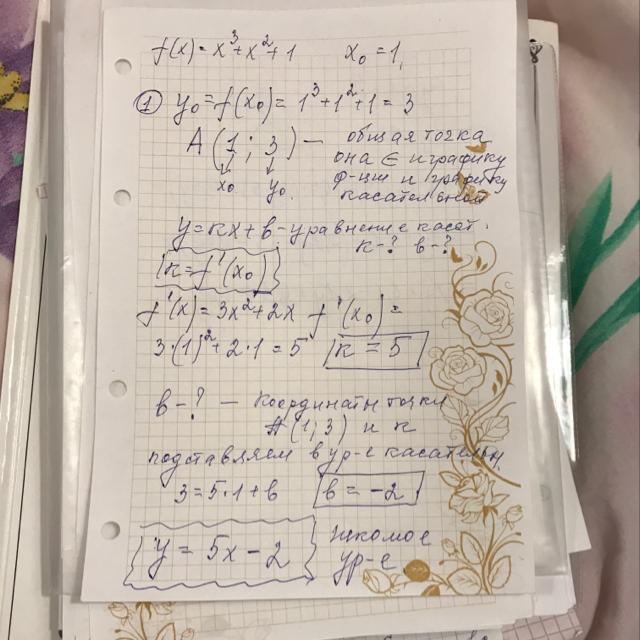 f(x) = x³+x²+1 x₀ = 1,
① y₀ = f(x₀) = 1³+1²+1 = 3
A (1 ; 3) — общая точка
она ∈ и графику
x₀ y₀. ф-ции и графику
касательной
y = кx + в – уравнение касат.
к-? в-?
к = f'(x₀)
f'(x) = 3x²+2x f'(x₀) =
3·(1)²+2·1 = 5 к = 5
в-? — координаты точки
А (1; 3) и к
подставляем в ур-е касательн.
3 = 5·1+в в = -2
y = 5x - 2 искомое
ур-е